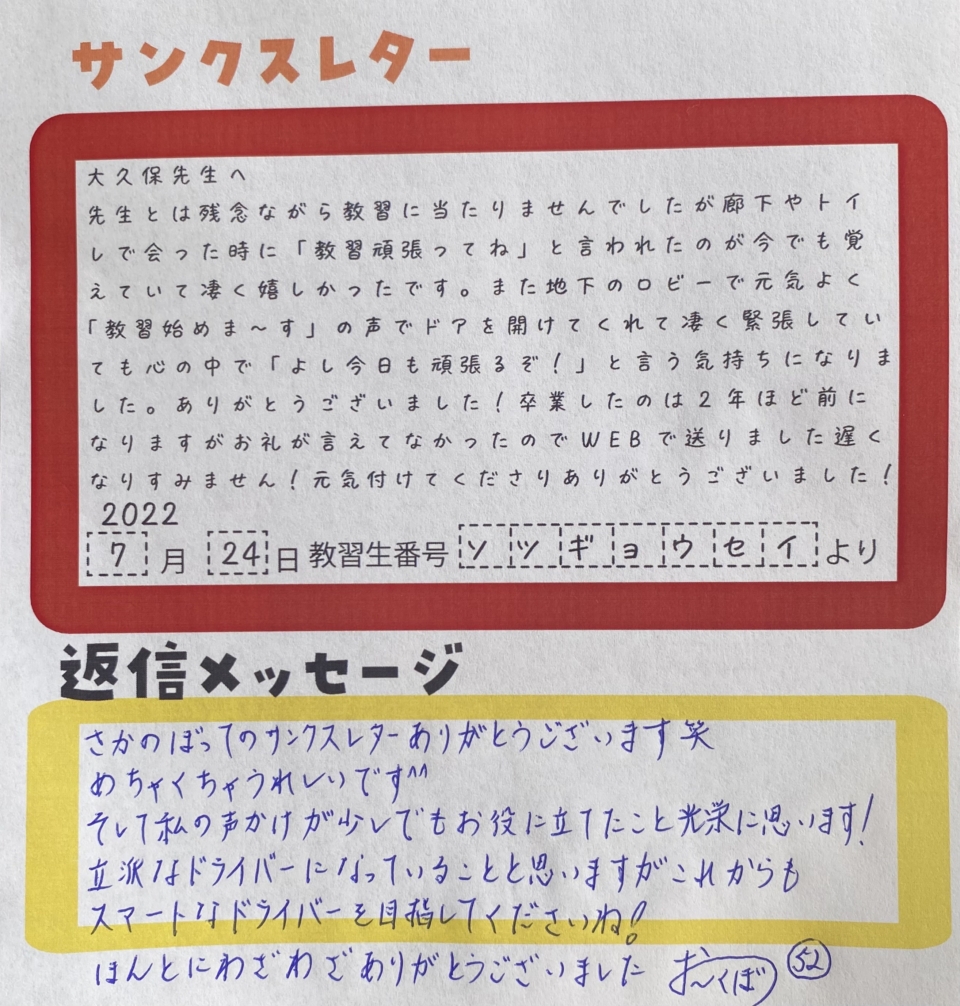 サンクスレター
大久保先生へ
先生とは残念ながら教習に当たりませんでしたが廊下やトイ
レで会った時に「教習頑張ってね」と言われたのが今でも覚
えていて凄く嬉しかったです。また地下のロビーで元気よく
「教習始めま～す」の声でドアを開けてくれて凄く緊張してい
ても心の中で「よし今日も頑張るぞ！」と言う気持ちになりま
した。ありがとうございました！卒業したのは２年ほど前に
なりますがお礼が言えてなかったのでWEBで送りました遅く
なりすみません！元気付けてくださりありがとうございました！
2022
7月 24日 教習生番号 ソツギョウセイより
返信メッセージ
さかのぼってのサンクスレターありがとうございます笑
めちゃくちゃうれしいです^^
そして私の声かけが少しでもお役に立てたこと光栄に思います！
立派なドライバーになっていることと思いますがこれからも
スマートなドライバーを目指してくださいね！
ほんとにわざわざありがとうございました お～くぼ 52